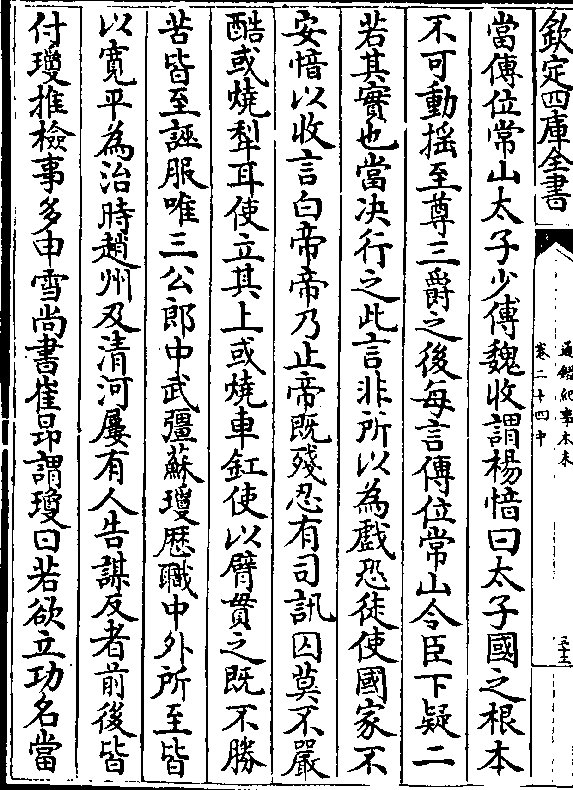 欽定四庫全書
通鑑紀事本末
卷二十四中
當傳位常山太子少傅魏收謂楊愔曰太子國之根本
不可動搖至尊三爵之後每言傳位常山令臣下疑二
若其實也當决行之此言非所以為戲恐徒使國家不
安愔以收言白帝帝乃止帝既殘忍有司訊囚莫不嚴
酷或燒犁耳使立其上或燒車釭使以臂貫之既不勝
苦皆至誣服唯三公郎中武彊蘇瓊歴職中外所至皆
以寛平為治時趙州及清河屢有人告謀反者前後皆
付瓊推檢事多申雪尚書崔昂謂瓊曰若欲立功名當